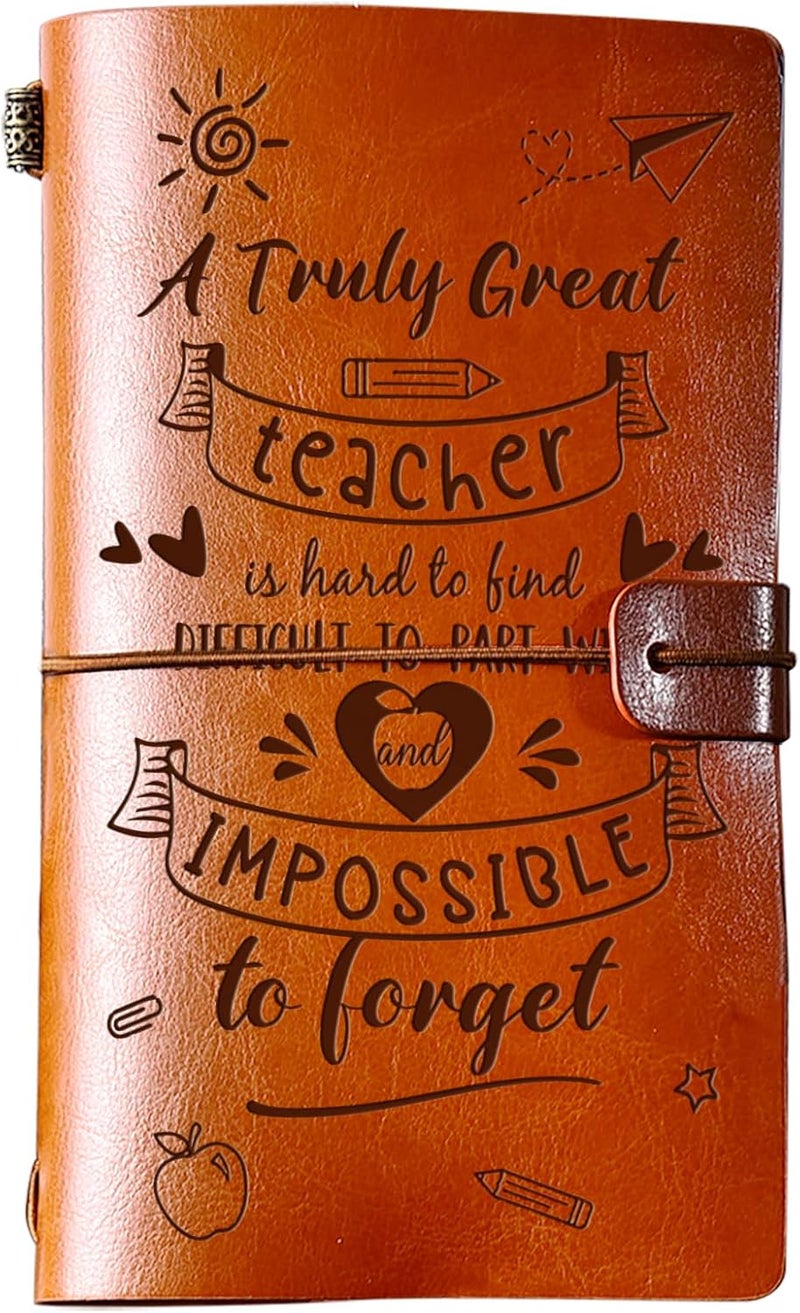 A Truly Great
teacher
is hard to find
DIFFICULT TO PART
and
IMPOSSIBLE
to forget